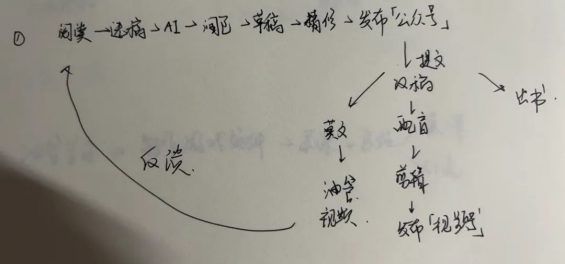 ① 阅类→选稿→AI→润色→草稿→精修→发布「公众号」
↓提文
改稿
出书.
英文
配音
↓
↓
剪辑
反馈.
油管
↓
视频.
发布「视频号」